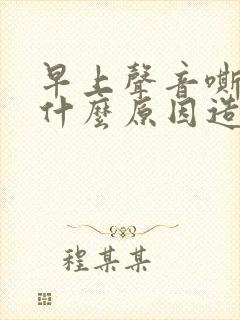 早上聲音嘶
什麼原因造
程某某